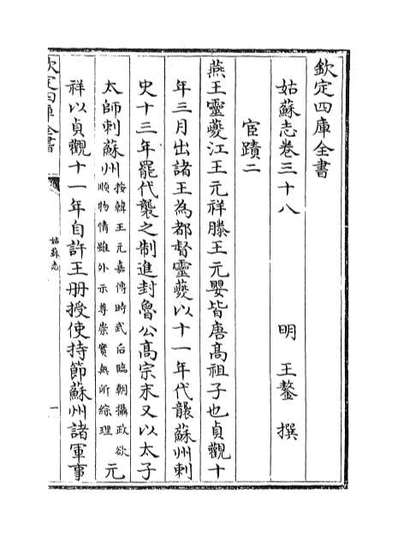 欽定四庫全書
姑蘇志卷三十八 明 王鏊 撰
宦蹟二
燕王靈夔江王元祥滕王元嬰皆唐髙祖子也貞觀十
年三月出諸王為都督靈夔以十一年代襲蘇州刺
史十三年罷代襲之制進封魯公髙宗末又以太子
太師刺蘇州 按韓王元嘉傳時武后臨朝攝政欲 順物情雖外示尊崇實無所綜理 元
祥以貞觀十一年自許王册授使持節蘇州諸軍事
欽定四庫全書
姑蘇志
一